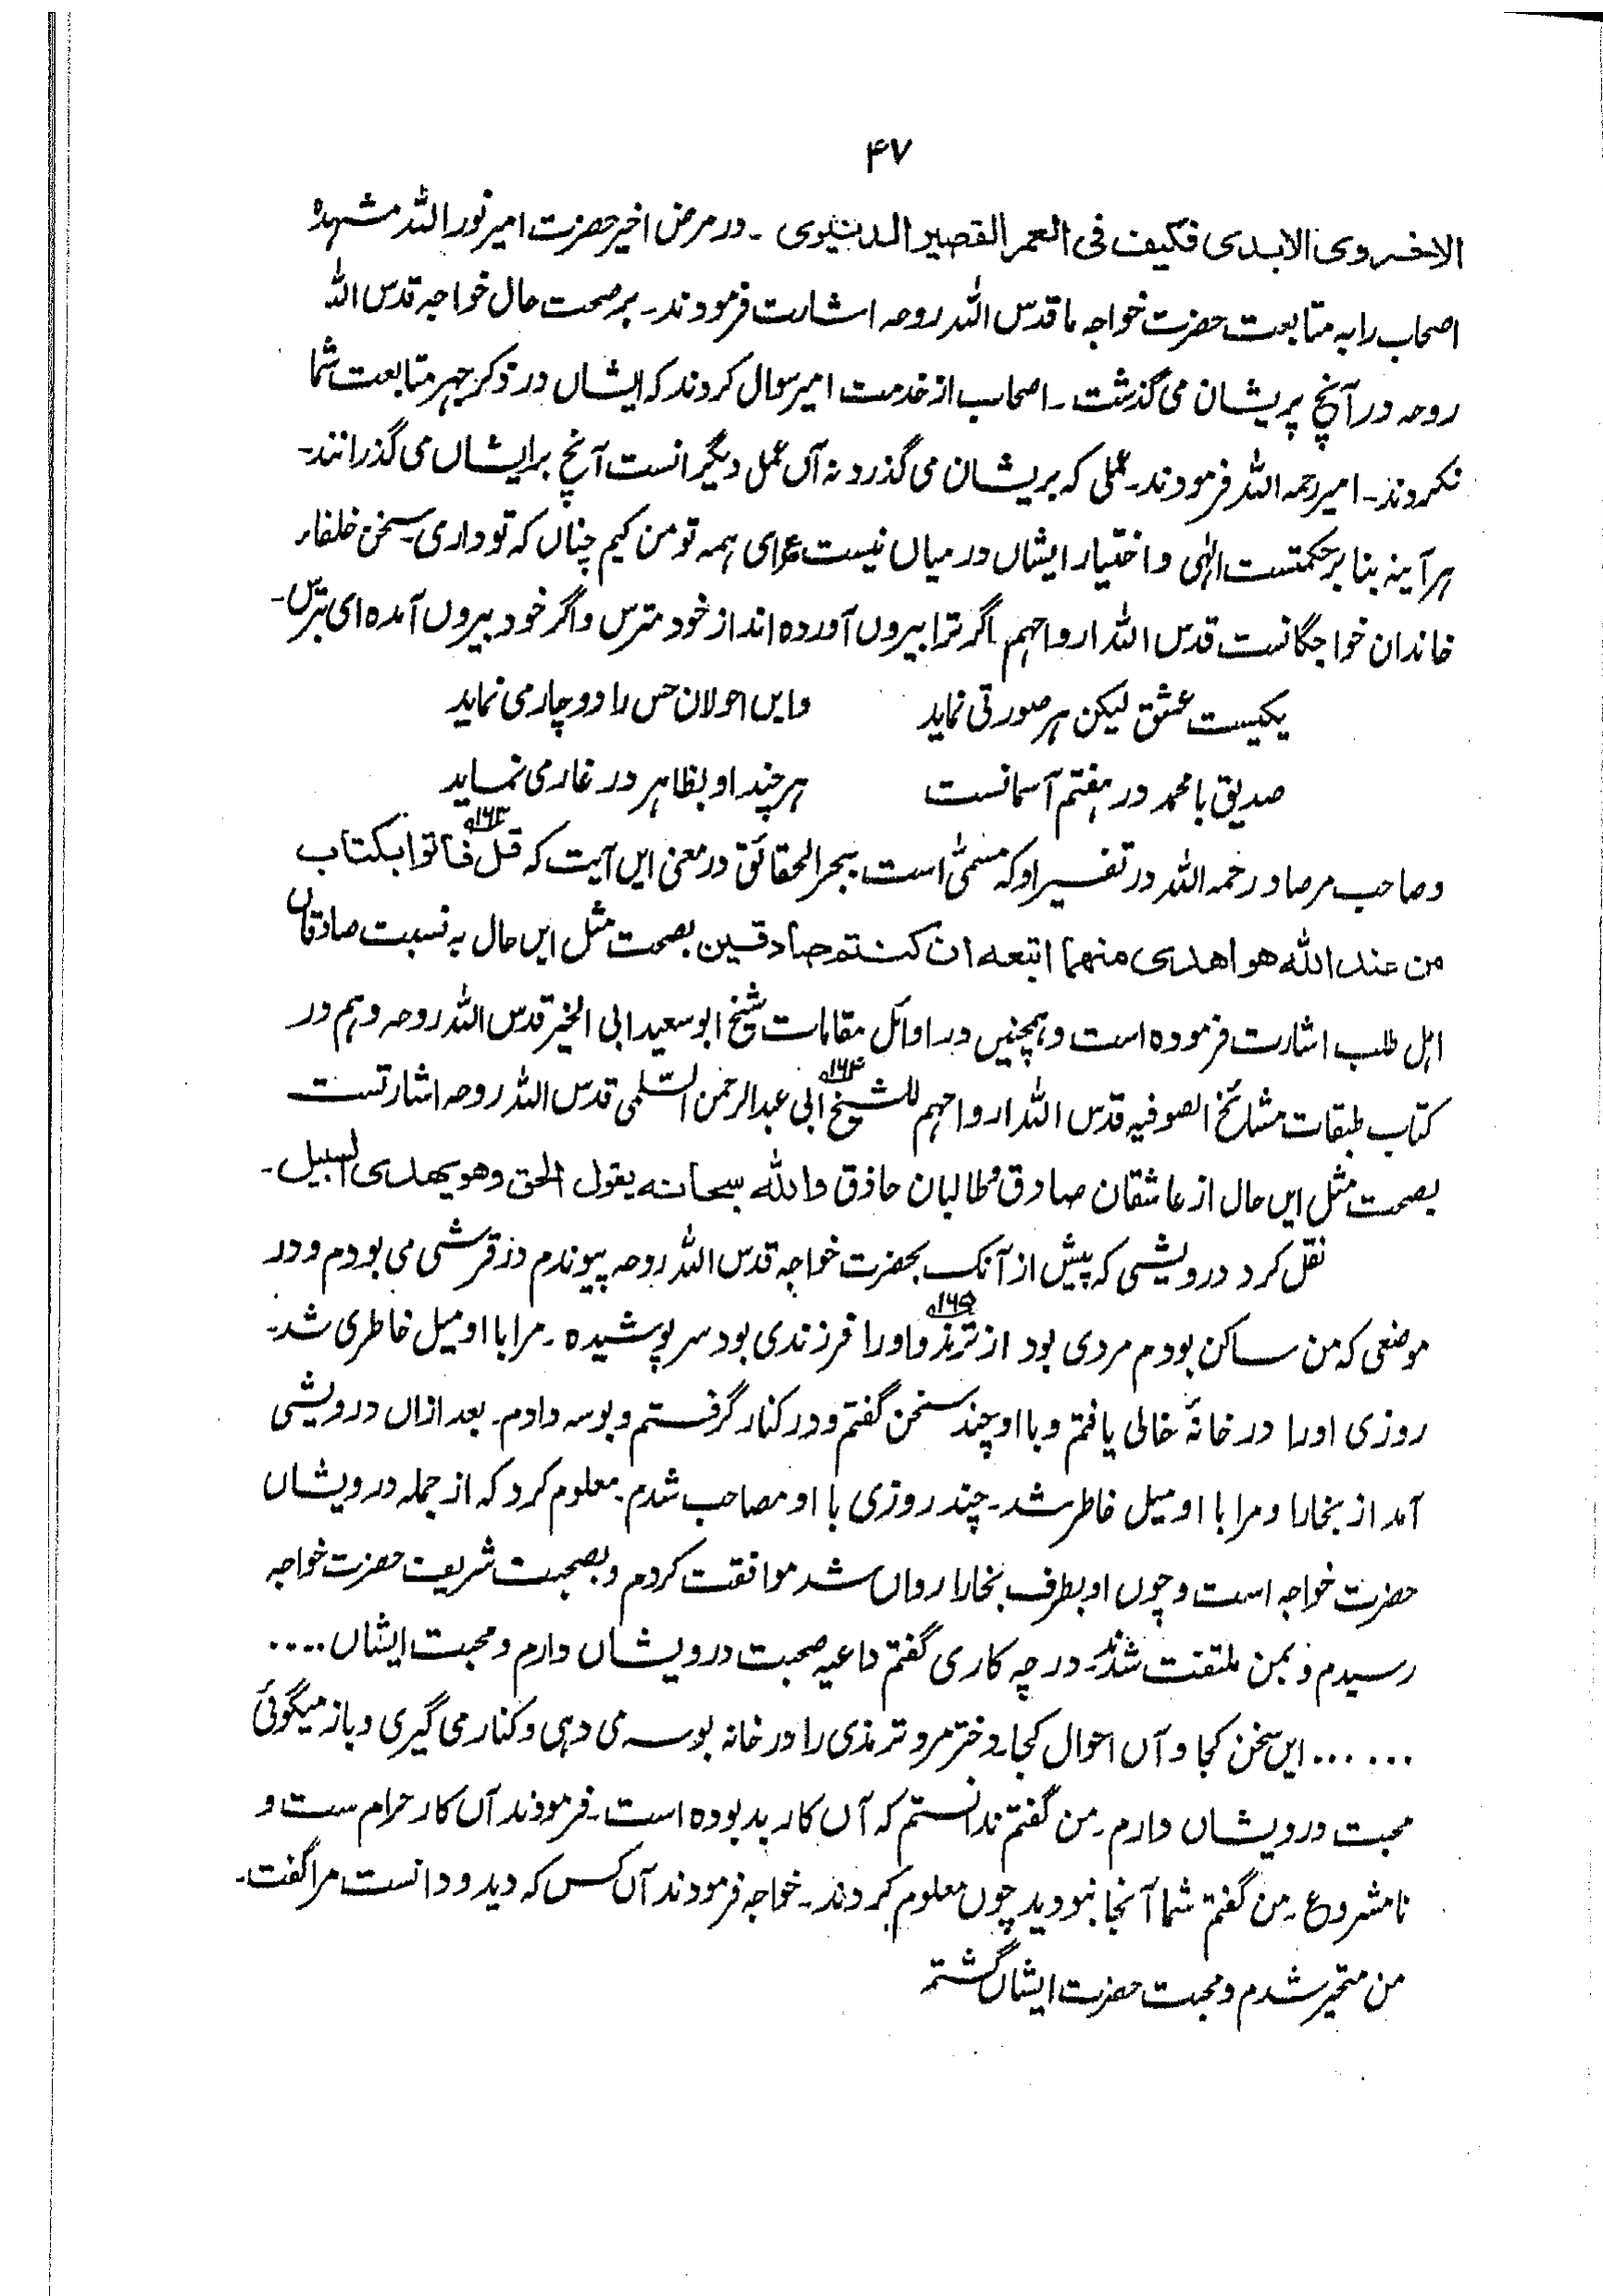 ۴۷
الاخروی الابدی فکیف فی العمر القصیر الدنیوی ۔ در مرض اخیر حضرت امیر نور اللہ مشہدہ
اصحاب را بہ متابعت حضرت خواجہ ما قدس اللہ روحہ اشارت فرمودند۔ بر صحت حال خواجہ قدس اللہ
روحہ در آنچ پریشان می گذشت ۔ اصحاب از خدمت امیر سوال کردند کہ ایشاں در ذکر جہر متابعت شما
نکردند۔ امیر رحمہ اللہ فرمودند۔ عملی کہ بریشان می گذرد نہ آں عمل دیگرانست آنچ برایشاں می گذرانند۔
ہر آینہ بنا بر حکمتست الٰہی و اختیار ایشاں در میاں نیست ع ای ہمہ تو من کیم چناں کہ تو داری۔ سخن خلفاء
خاندان خواجگانست قدس اللہ ارواحہم اگر ترا بیروں آوردہ اند از خود مترس و اگر خود بیروں آمدہ ای بترس۔
یکیست عشق لیکن ہر صورتی نماید وایں احولان حس را دو چار می نماید
صدیق با محمد در ہفتم آسمانست ہر چند او بظاہر در غار می نماید
و صاحب مرصاد رحمہ اللہ در تفسیر او کہ مسمّٰی است ببحر الحقائق در معنی ایں آیت کہ قل فاتوا بکتاب ۱۶۳ھ
من عند اللہ هو اهدی منهما اتبعه ان کنتم صادقین بصحت مثل ایں حال بہ نسبت صادقاں
اہل طلب اشارت فرمودہ است و ہمچنیں در اوائل مقامات شیخ ابو سعید ابی الخیر قدس اللہ روحہ و ہم در
کتاب طبقات مشائخ الصوفیہ قدس اللہ ارواحہم للشیخ ۱۶۴ھ ابی عبدالرحمٰن السّلمی قدس اللہ روحہ اشارتست
بصحت مثل ایں حال از عاشقان صادق و طالبان حاذق واللہ سبحانه یقول الحق وهو یهدی السبیل۔
نقل کرد درویشی کہ پیش از آنک بحضرت خواجہ قدس اللہ روحہ پیوندم در قرشی می بودم و در
موضعی کہ من ساکن بودم مردی بود از ترمذ ۱۶۵ھ و او را فرزندی بود سر پوشیدہ ۔ مرا با او میل خاطری شد۔
روزی او را در خانۂ خالی یافتم و با او چند سخن گفتم و در کنار گرفتم و بوسہ دادم۔ بعد ازاں درویشی
آمد از بخارا و مرا با او میل خاطر شد۔ چند روزی با او مصاحب شدم۔ معلوم کرد کہ از جملہ درویشاں
حضرت خواجہ است و چوں او بطرف بخارا رواں شد موافقت کردم و بصحبت شریف حضرت خواجہ
رسیدم و بمن ملتفت شدند۔ در چہ کاری گفتم داعیہ صحبت درویشاں دارم و محبت ایشاں ....
...... ایں سخن کجا و آں احوال کجا۔ دختر مرد ترمذی را در خانہ بوسہ می دہی و کنار می گیری و باز میگوئی
محبت درویشاں دارم۔ من گفتم ندانستم کہ آں کار بد بودہ است۔ فرمودند آں کار حرام ست و
نامشروع ۔ من گفتم شما آنجا نبودید چوں معلوم کردند۔ خواجہ فرمودند آں کس کہ دید و دانست مرا گفت۔
من متحیر شدم و محبت حضرت ایشاں گشتم